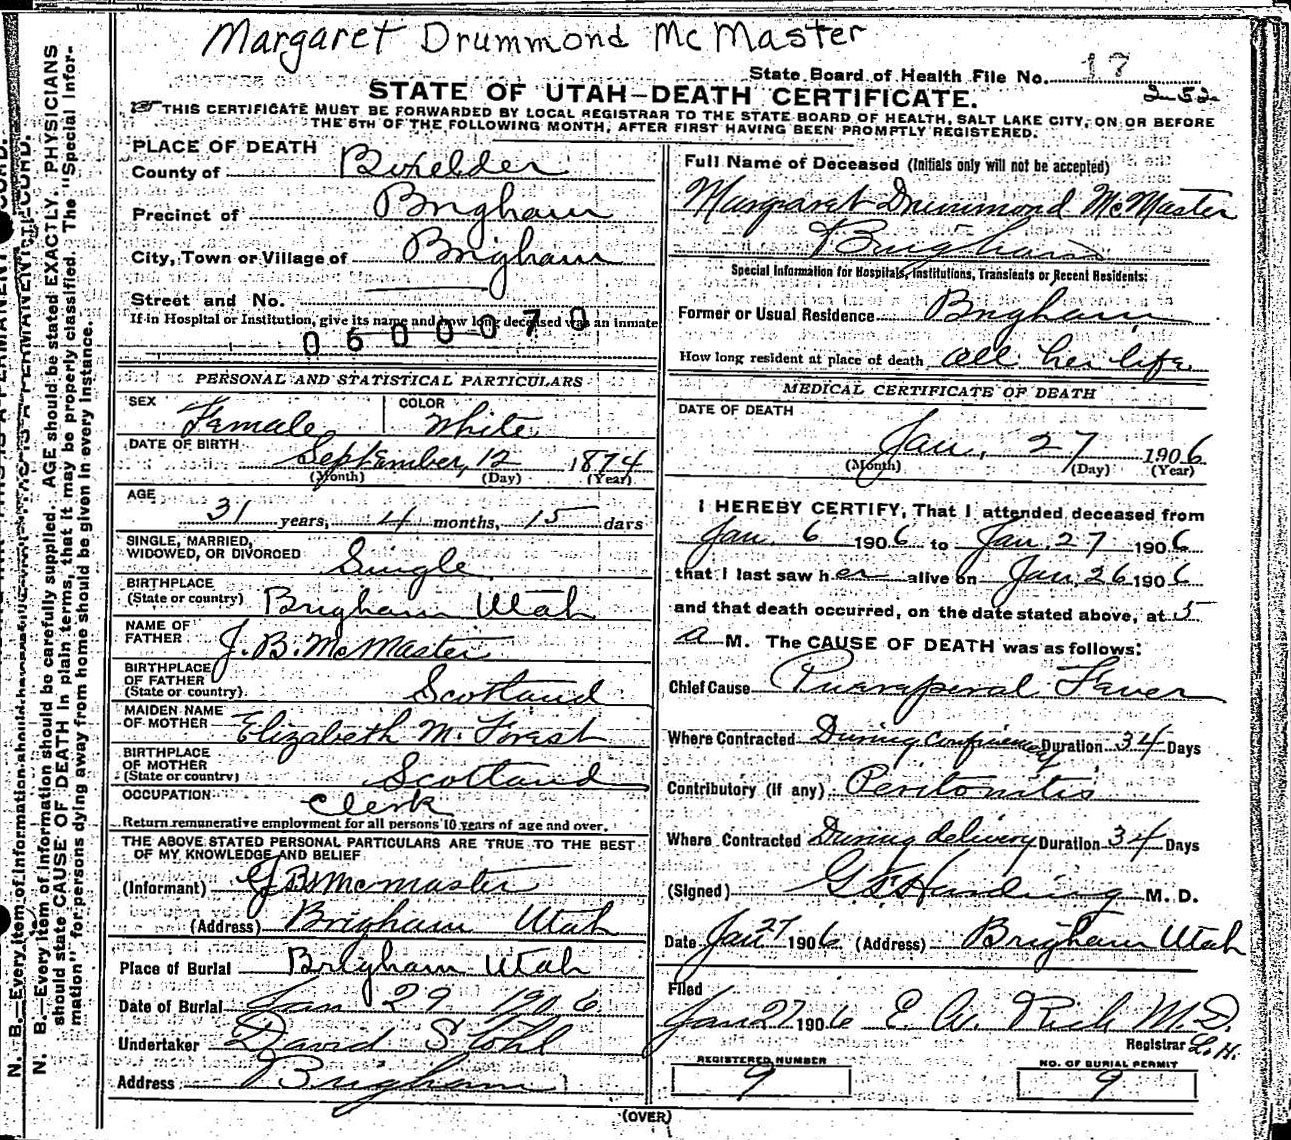 Margaret Drummond McMaster
State Board of Health File No. 17
252
STATE OF UTAH—DEATH CERTIFICATE.
THIS CERTIFICATE MUST BE FORWARDED BY LOCAL REGISTRAR TO THE STATE BOARD OF HEALTH, SALT LAKE CITY, ON OR BEFORE
THE 5TH OF THE FOLLOWING MONTH, AFTER FIRST HAVING BEEN PROMPTLY REGISTERED.
PLACE OF DEATH
County of Boxelder
Precinct of Brigham
City, Town or Village of Brigham
Street and No.
If in Hospital or Institution, give its name and how long deceased was an inmate
0600070
PERSONAL AND STATISTICAL PARTICULARS
SEX Female COLOR White
DATE OF BIRTH September 12 1874
(Month) (Day) (Year)
AGE 31 years, 4 months, 15 days
SINGLE, MARRIED,
WIDOWED, OR DIVORCED Single
BIRTHPLACE
(State or country) Brigham Utah
NAME OF
FATHER J. B. McMaster
BIRTHPLACE
OF FATHER
(State or country) Scotland
MAIDEN NAME
OF MOTHER Elizabeth M. Forest
BIRTHPLACE
OF MOTHER
(State or country) Scotland
OCCUPATION Clerk
Return remunerative employment for all persons 10 years of age and over.
THE ABOVE STATED PERSONAL PARTICULARS ARE TRUE TO THE BEST
OF MY KNOWLEDGE AND BELIEF
(Informant) McMaster
(Address) Brigham Utah
Place of Burial Brigham Utah
Date of Burial Jan 29 1906
Undertaker David Stohl
Address Brigham
Full Name of Deceased (Initials only will not be accepted)
Margraret Drummond McMaster
Brigham
Special Information for Hospitals, Institutions, Transients or Recent Residents:
Former or Usual Residence Brigham
How long resident at place of death all her life
MEDICAL CERTIFICATE OF DEATH
DATE OF DEATH
Jan. 27 1906
(Month) (Day) (Year)
I HEREBY CERTIFY, That I attended deceased from
Jan. 6 1906 to Jan. 27 1906
that I last saw her alive on Jan. 26 1906
and that death occurred, on the date stated above, at 5
a M. The CAUSE OF DEATH was as follows:
Chief Cause Puaraperal Faver
Where Contracted During confinement Duration 34 Days
Contributory (if any) Peritonitis
Where Contracted During delivery Duration 34 Days
(Signed) Harding M. D.
Date Jan 27 1906 (Address) Brigham Utah
Filed
Jan 27 1906 E. W. Rich M.D.
Registrar L.H.
REGISTERED NUMBER
9
NO. OF BURIAL PERMIT
9
(OVER)
N. B.—Every item of information should be carefully supplied. AGE should be stated EXACTLY. PHYSICIANS
should state CAUSE OF DEATH in plain terms, that it may be properly classified. The "Special Infor-
mation" for persons dying away from home should be given in every instance.
N. B.—Every item of information should